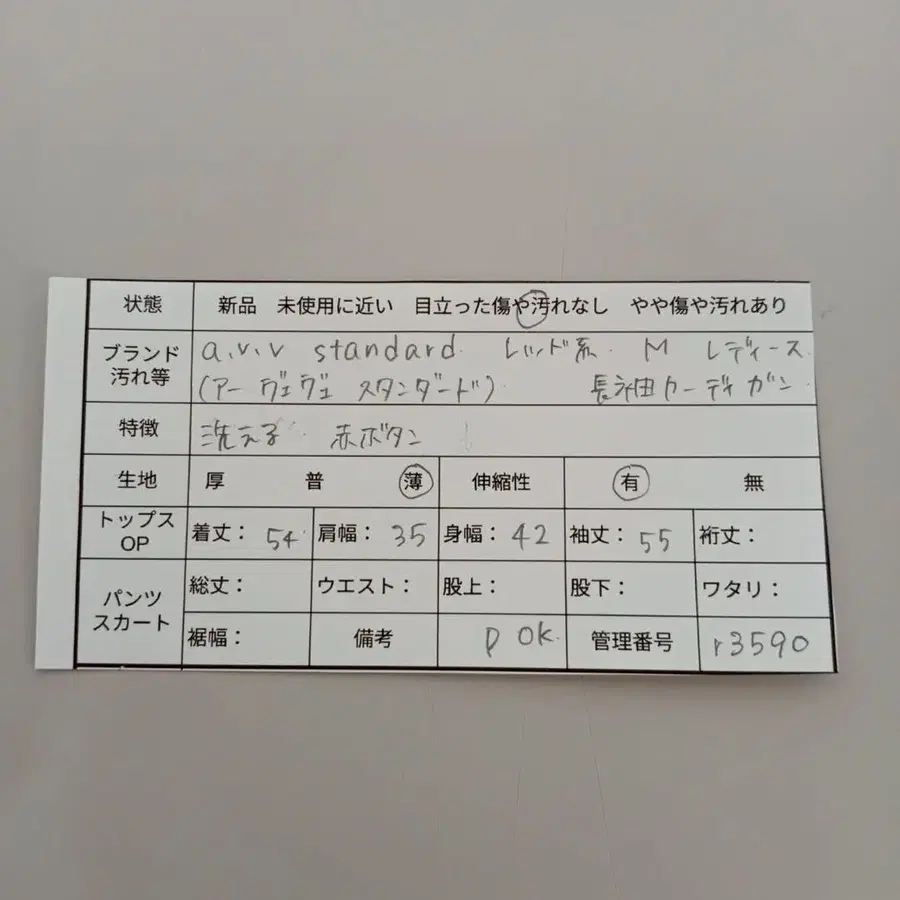 状態 新品 未使用に近い 目立った傷や汚れなし やや傷や汚れあり
ブランド 汚れ等 a.v.v standard. レッド系 M レディース
(アーヴェヴェ スタンダード) 長袖カーディガン
特徴 洗える 赤ボタン
生地 厚 普 薄 伸縮性 有 無
トップス OP 着丈: 54 肩幅: 35 身幅: 42 袖丈: 55 裄丈:
パンツ スカート 総丈: ウエスト: 股上: 股下: ワタリ:
裾幅: 備考 P OK. 管理番号 r3590